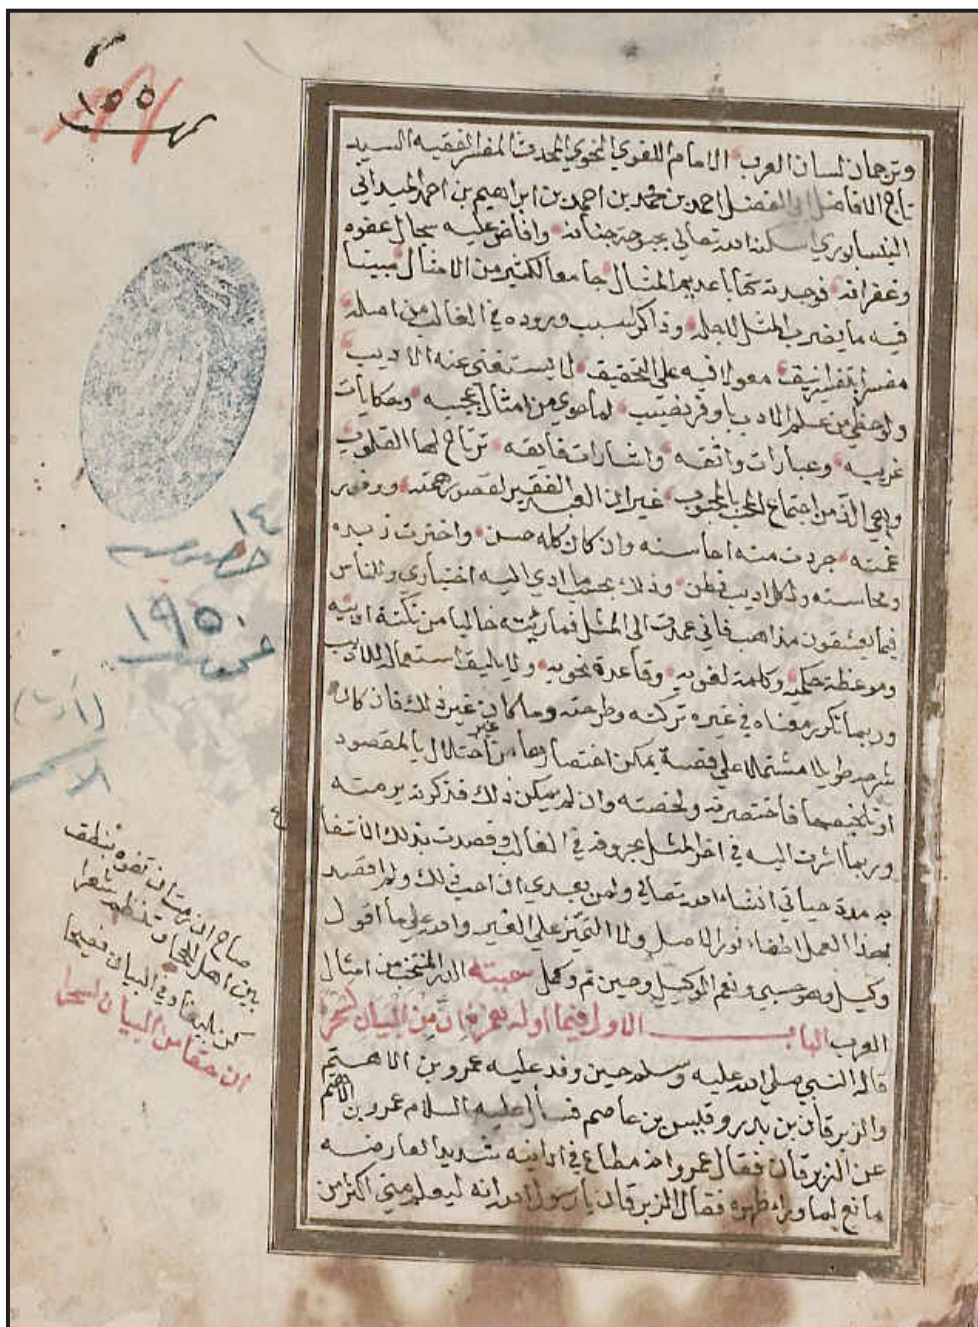 ١٥٥
وترجمان لسان العرب الامام اللغوي النحوي المحدث المفسر الفقيه السيد
تاج الافاضل ابي الفضل احمد بن محمد بن احمد بن ابراهيم بن احمد الميداني
النيسابوري اسكنه الله تعالى بحبوحة جنانه وافاض عليه سجال عفوه
وغفرانه فوجدته كتابا عديم المثال جامعا لكثير من الامثال مبينا
فيه ما يضرب المثل لاجله وذاكر لسبب وروده في الغالب من اصله
مفسرا معولا فيه على التحقيق لا يستغنى عنه الاديب
ولو حظي من علم الادب باوفر نصيب لما حوي من امثال عجيبه وحكايات
غريبه وعبارات واثقه واشارات فايقه ترتاح لها القلوب
وهي الذ من اجتماع المحب بالمحبوب غير اني الفقير لقصور همته ووفور
غمته جردت منه احاسنه وان كان كله حسن واخترت زبده
ومحاسنه ولكل اديب فطن وذلك بحسب ما ادي اليه اختياري وللناس
فيما يعشقون مذاهب فاني عمدت الى المثل فما رئيته خاليا من نكتة ادبيه
وموعظة حكميه وكلمة لغويه وقاعدة نحويه ولا يليق استعماله للاديب
وربما تكرر معناه في غيره تركته وطرحته وما كان غير ذلك فان كان
شرحه طويلا مشتملا على قصة يمكن اختصارها من غير اختلال بالمقصود
او تلخيصها فاختصرته ولخصته وان لم يمكن ذلك فذكرته برمته
وربما اشرت اليه في اخر المثل بحروفه في الغالب وقصدت بذلك الانتفا
به مدة حياتي انشاء الله تعالى ولمن بعدي ان احب ذلك ولم اقصد
بهذا العمل اطفاء نور الاصل ولا التميز على الغير والله على ما اقول
وكيل وهو حسبي ونعم الوكيل وحين تم وكمل سميته الدر المنتخب من امثال
العرب الباب الاول فيما اوله همزة ان من البيان لسحرا
قاله النبي صلى الله عليه وسلم حين وفد عليه عمرو بن الاهتم
والزبرقان بن بدر وقيس بن عاصم فسأل عليه السلام عمرو بن الاهتم
عن الزبرقان فقال عمرو انه مطاع في ادانيه شديد العارضه
مانع لما وراء ظهره فقال الزبرقان يا رسول الله انه ليعلم مني اكثر من
١٤
خصوصيه
١٩٥٠
عمومية
(أدب)
صاح ان رمت ان تفوه بنطق
بين اهل الحجا وتنظم شعرا
كن بليغا وفي البيان فصيحا
ان حقا من البيان لسحرا